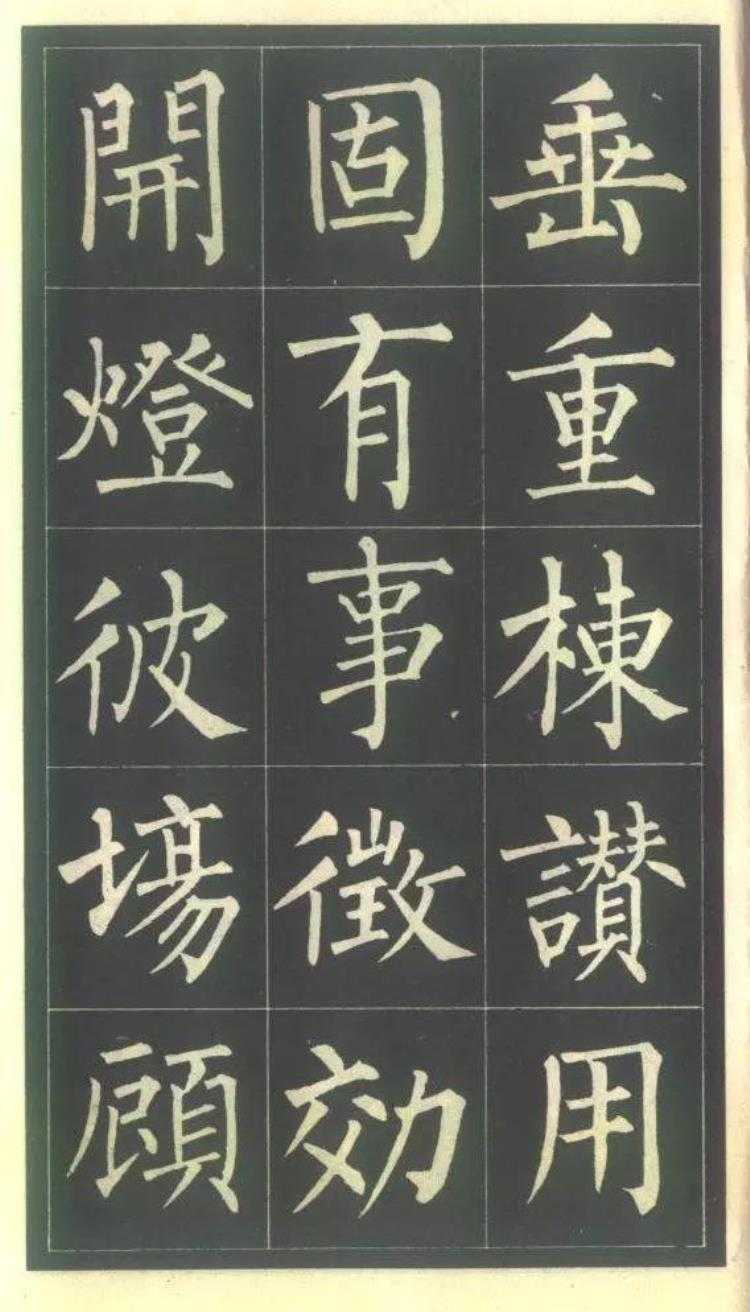 垂重棟讃用
固有事徴効
開燈彼塲顧